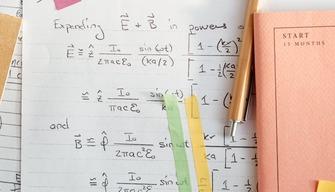 Expanding E + B in powers o
E ≅ ẑ I₀ / 2πacε₀ sin(ωt) / (ka/2) [ 1 - (kr/2)² / 1 - ½(ka
≅ ẑ I₀ / πacε₀ sin(ωt) [ 1
and
B ≅ φ̂ I₀ / 2πac²ε₀ sin ωt kr / ka [ 1- / 1-
≅ φ̂ I₀ / 2πac²ε₀ sin ωt [ 1-
START
15 MONTHS